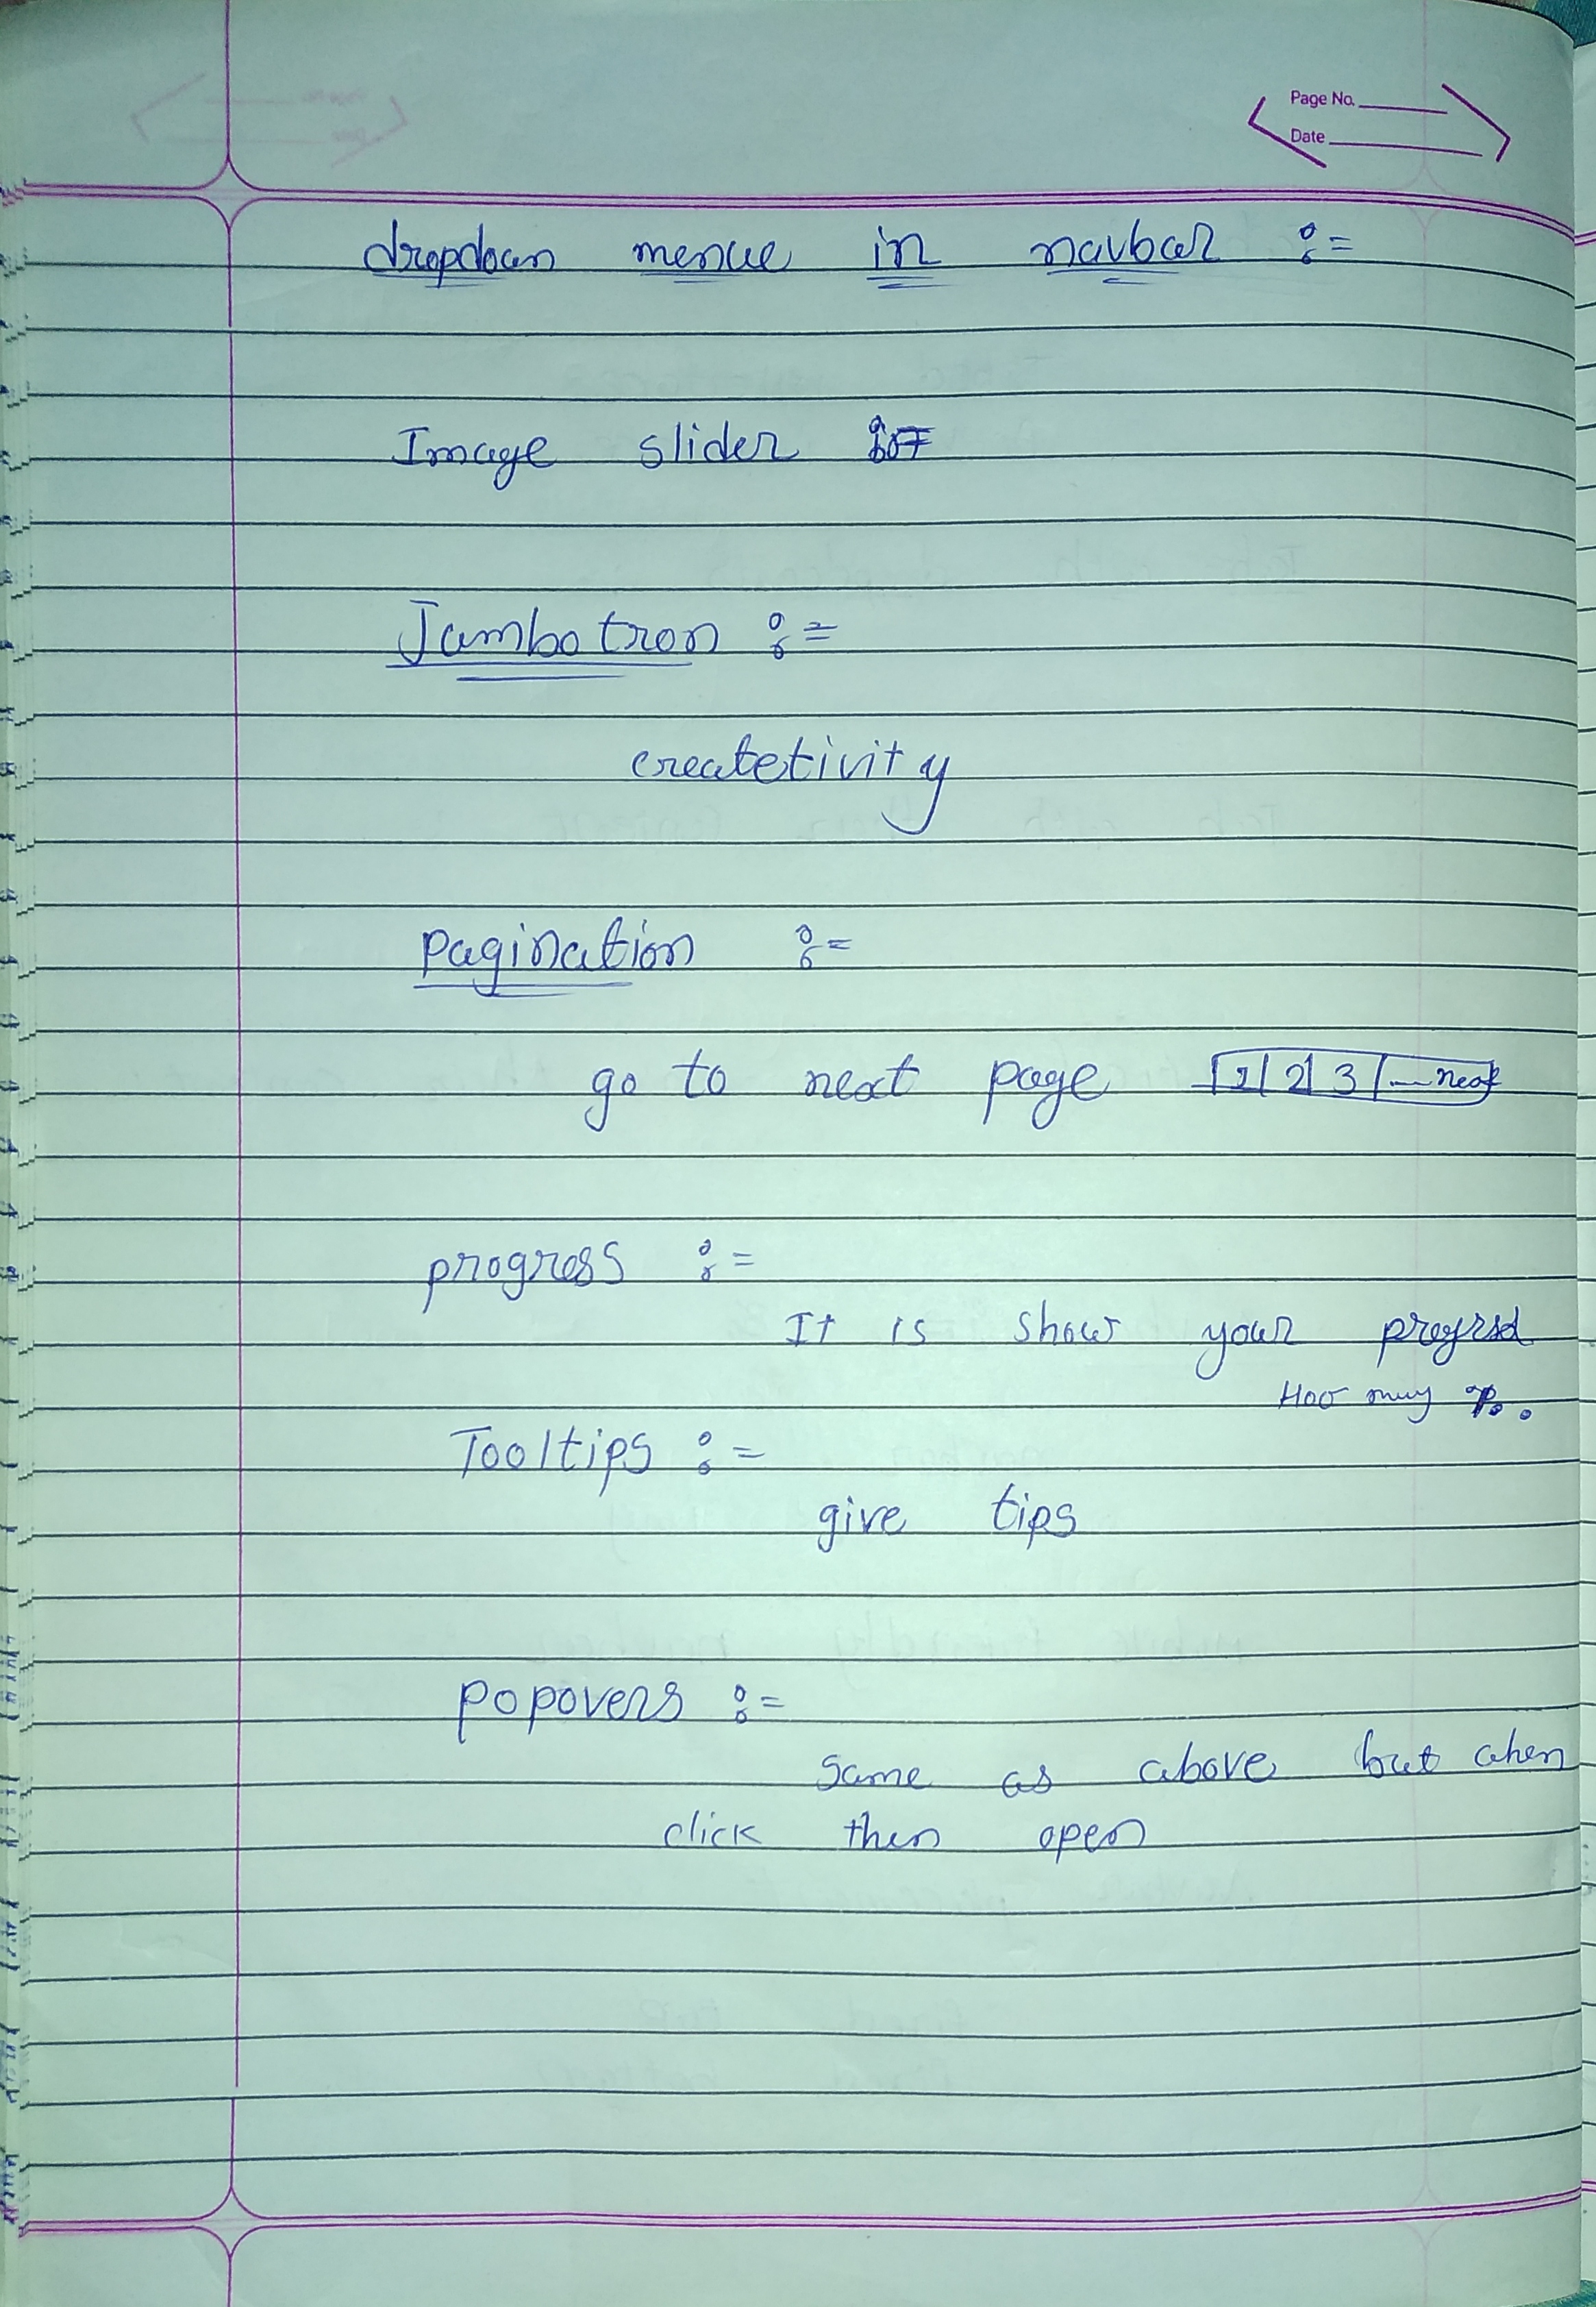 Page No.
Date
dropdown menue in navbar :=
Image slider :=
Jumbotron :=
createtivity
pagination :=
go to next page 1 2 3 --- next
progress :=
It is show your
Hoo %.
Tooltips :=
give tips
popovers :=
same as above but when
click then open